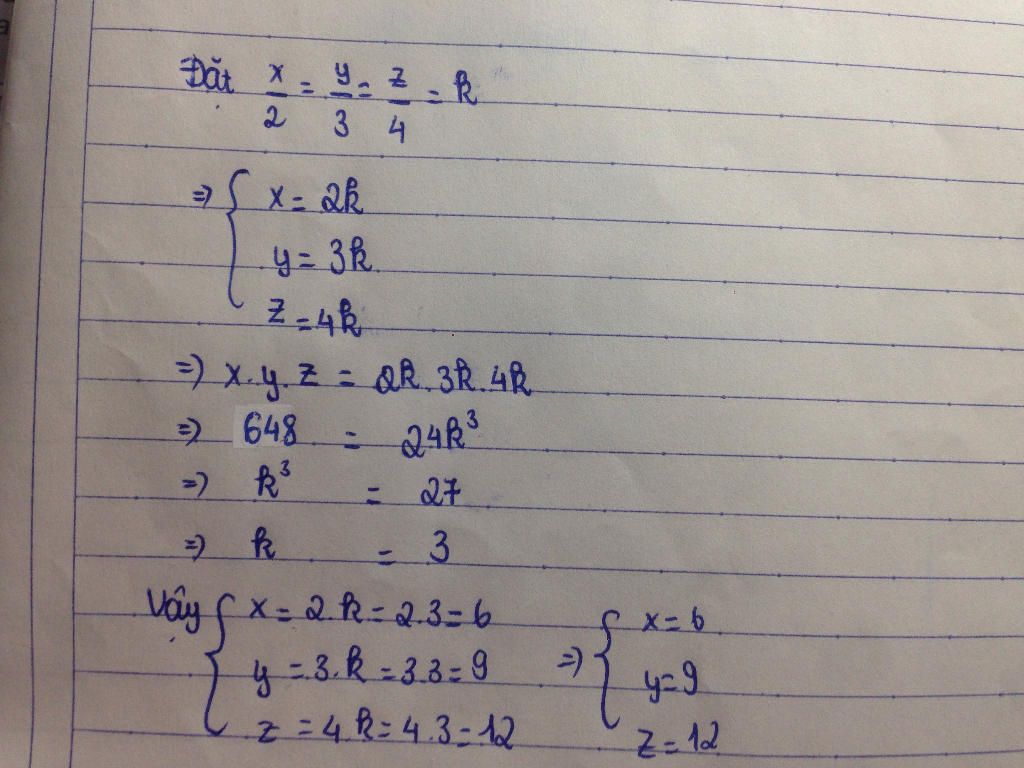 Đặt x/2 = y/3 = z/4 = k
=> { x = 2k
y = 3k
z = 4k
=> x.y.z = 2k.3k.4k
=> 648 = 24k³
=> k³ = 27
=> k = 3
Vậy { x = 2.k = 2.3 = 6 => { x = 6
y = 3.k = 3.3 = 9 y = 9
z = 4k = 4.3 = 12 z = 12